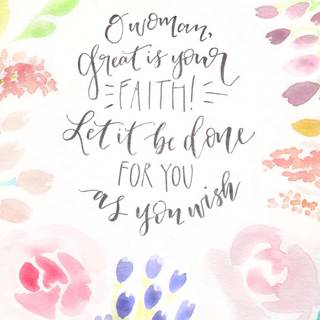 O woman,
great is your
FAITH!
Let it be done
FOR YOU
as you wish